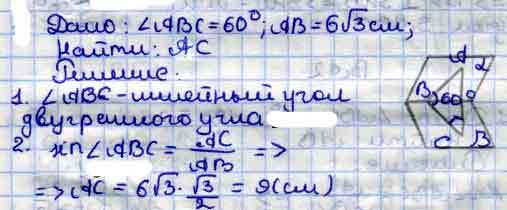 Дано: ∠ABC=60°; AB=6√3см;
Найти: AC
Решение.
1. ∠ABC-линейный угол
двугранного угла
2. sin∠ABC = AC/AB =>
=> AC = 6√3·√3/2 = 9(см)
A α
B 60°
C β